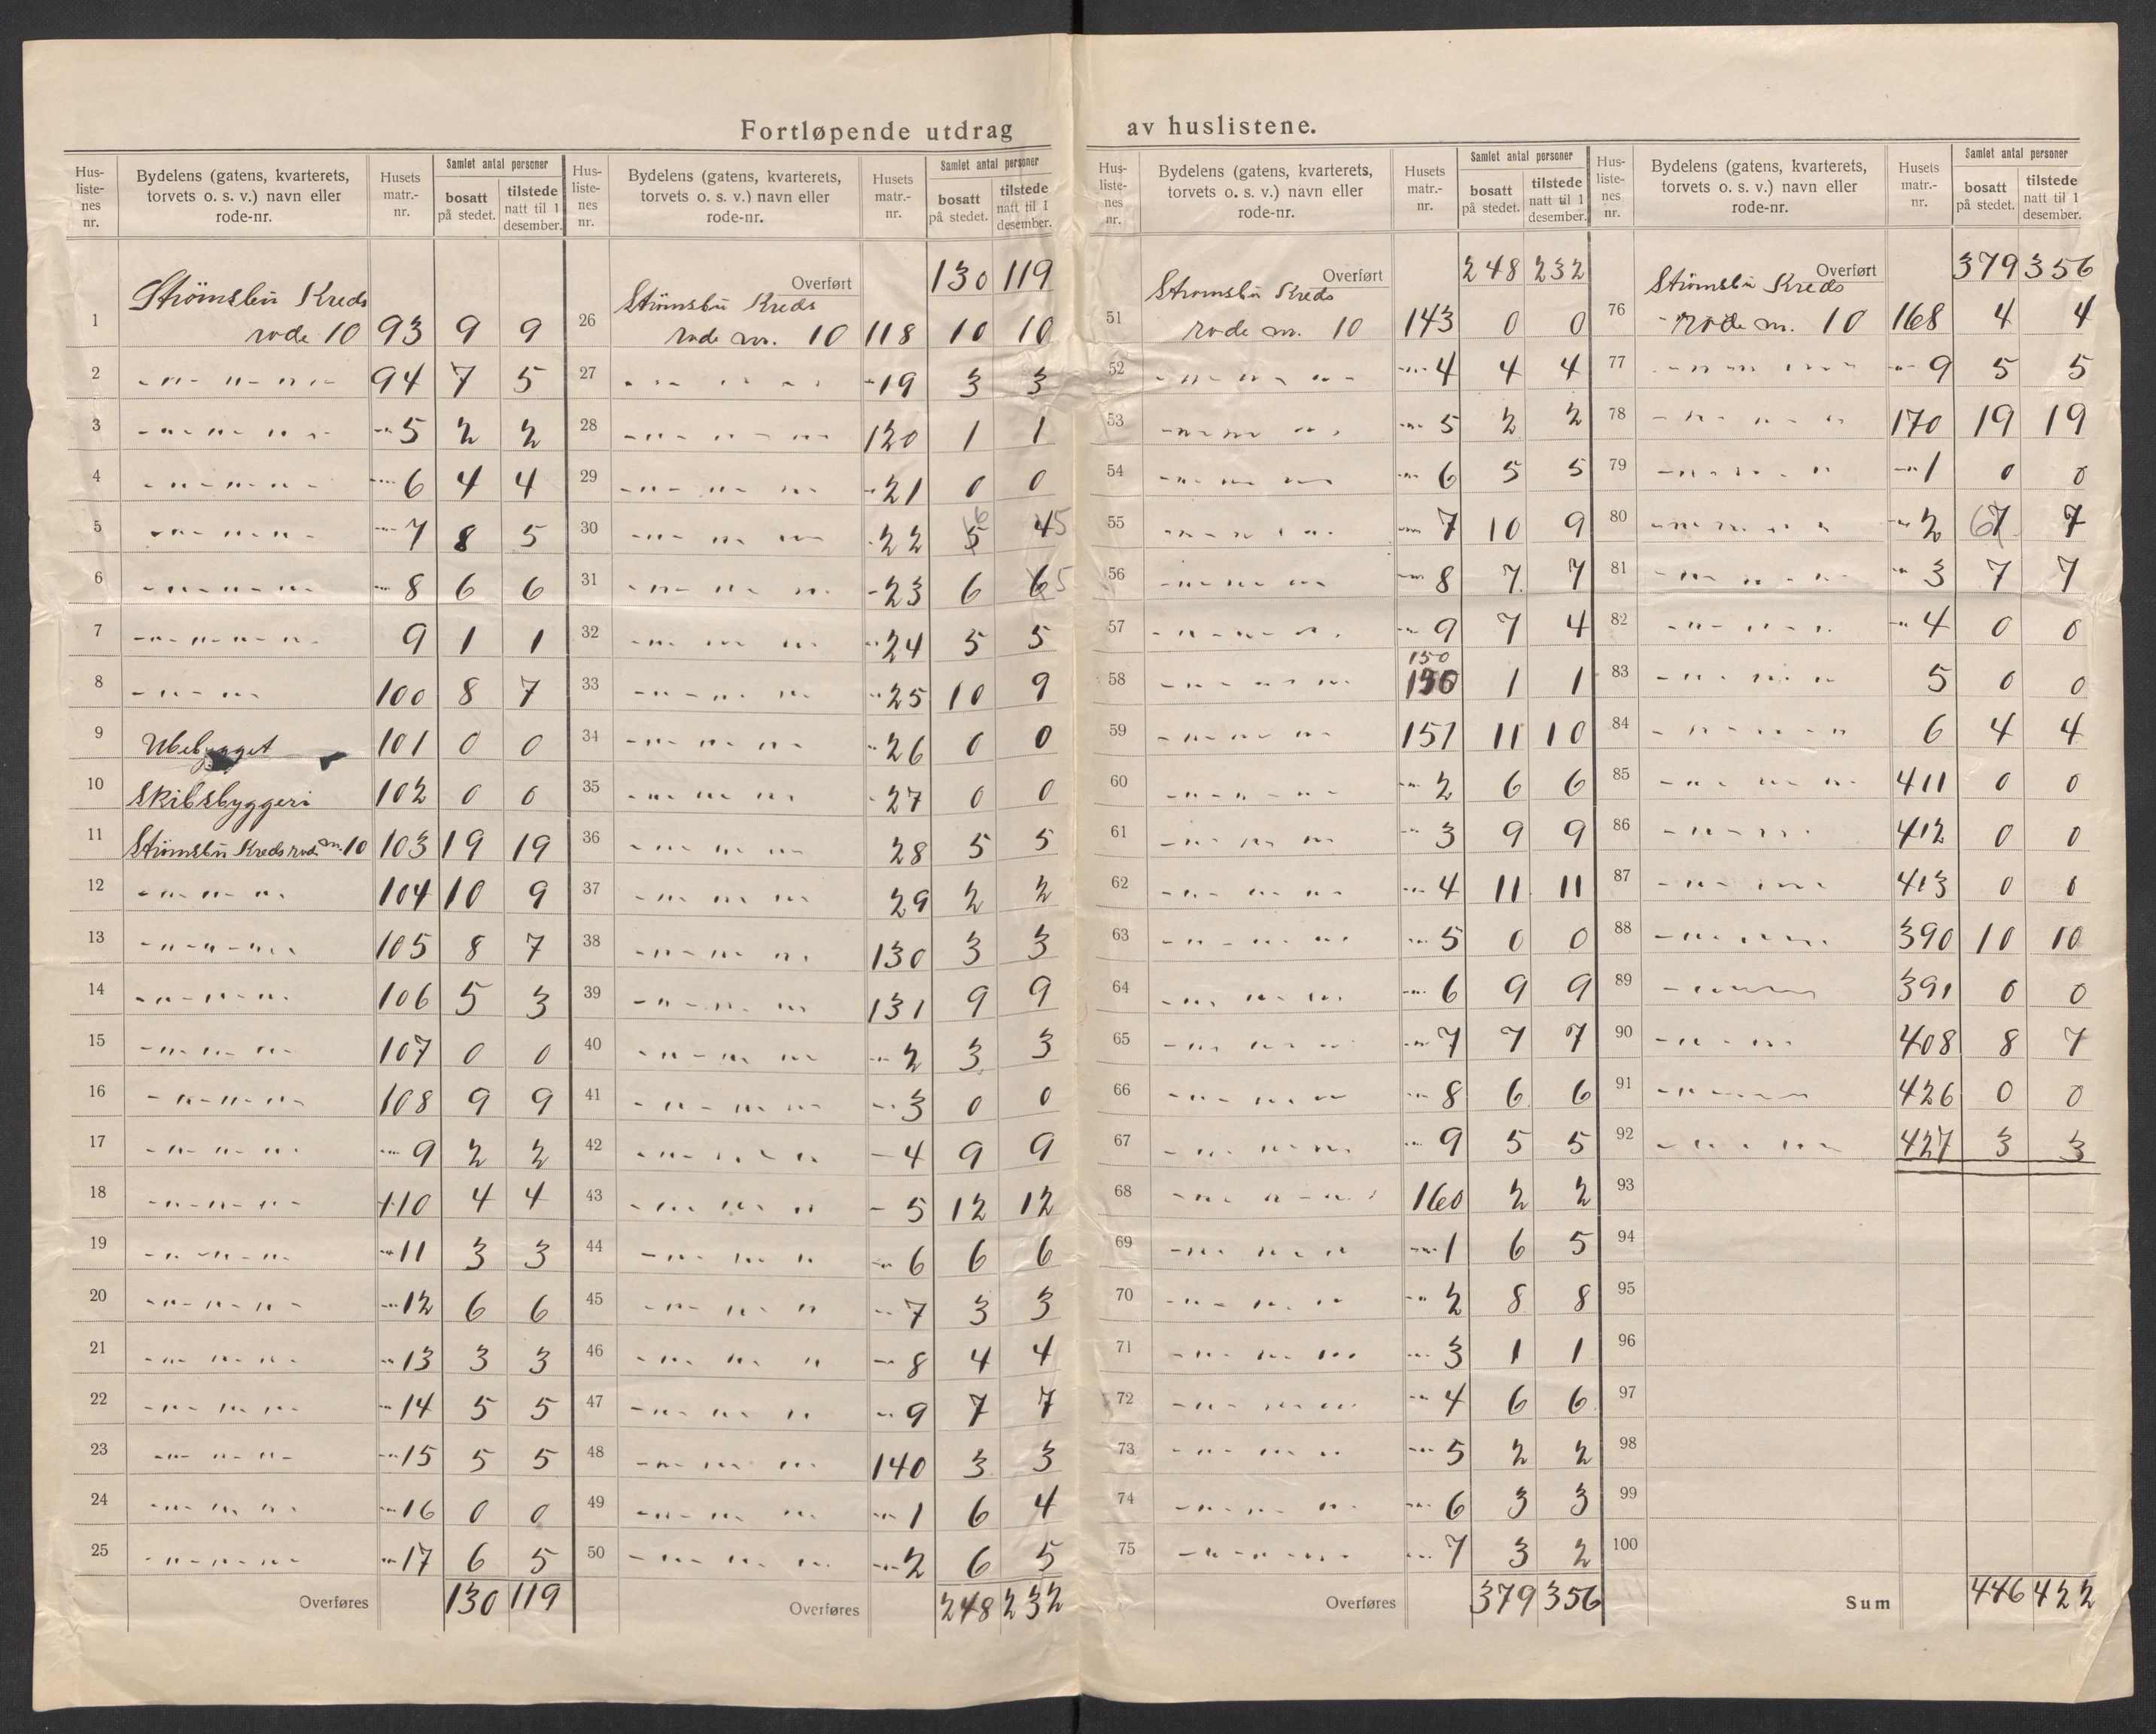 Fortløpende utdrag av huslistene.
Hus-listenes nr. | Bydelens (gatens, kvarterets, torvets o. s. v.) navn eller rode-nr. | Husets matr.-nr. | Samlet antal personer bosatt på stedet. | tilstede natt til 1 desember.
1 Strømsbu Kreds rode 10 93 9 9
2 -"- "- "- 94 7 5
3 -"- "- " - -"- 5 2 2
4 -"- "- " - -"- 6 4 4
5 -"- "- " - -"- 7 8 5
6 -"- "- " - -"- 8 6 6
7 -"- "- " - 9 1 1
8 -"- "- 100 8 7
9 Ubebygget 101 0 0
10 Skibsbyggeri 102 0 0
11 Strømsbu Kreds rode nr. 10 103 19 19
12 -"- "- " 104 10 9
13 -"- "- " 105 8 7
14 -"- "- " 106 5 3
15 -"- "- " 107 0 0
16 -"- "- " 108 9 9
17 -"- "- " -"- 9 2 2
18 -"- "- " 110 4 4
19 -"- "- " -"- 11 3 3
20 -"- "- " -"- 12 6 6
21 -"- "- " -"- 13 3 3
22 -"- "- " -"- 14 5 5
23 -"- "- " -"- 15 5 5
24 -"- "- " -"- 16 0 0
25 -"- "- " -"- 17 6 5
Overføres 130 119
Hus-listenes nr. | Bydelens (gatens, kvarterets, torvets o. s. v.) navn eller rode-nr. | Husets matr.-nr. | Samlet antal personer bosatt på stedet. | tilstede natt til 1 desember.
Overført 130 119
26 Strømsbu Kreds rode nr. 10 118 10 10
27 -"- " " - 19 3 3
28 -"- " " 120 1 1
29 -"- " " - 21 0 0
30 -"- " " - 22 5 6 4 5
31 -"- " " - 23 6 6 5
32 -"- " " - 24 5 5
33 -"- " " - 25 10 9
34 -"- " " - 26 0 0
35 -"- " " - 27 0 0
36 -"- " " 28 5 5
37 -"- " " 29 2 2
38 -"- " " 130 3 3
39 -"- " " 131 9 9
40 -"- " " -"- 2 3 3
41 -"- " " -"- 3 0 0
42 -"- " " - 4 9 9
43 -"- " " - 5 12 12
44 -"- " " -"- 6 6 6
45 -"- " " -"- 7 3 3
46 -"- " " -"- 8 4 4
47 -"- " " -"- 9 7 7
48 -"- " " 140 3 3
49 -"- " " -"- 1 6 4
50 -"- " " -"- 2 6 5
Overføres 248 232
Hus-listenes nr. | Bydelens (gatens, kvarterets, torvets o. s. v.) navn eller rode-nr. | Husets matr.-nr. | Samlet antal personer bosatt på stedet. | tilstede natt til 1 desember.
Overført 248 232
51 Strømsbu Kreds rode nr. 10 143 0 0
52 -"- " " -"- 4 4 4
53 -"- " " -"- 5 2 2
54 -"- " " -"- 6 5 5
55 -"- " " -"- 7 10 9
56 -"- " " -"- 8 7 7
57 -"- " " -"- 9 7 4
58 -"- " " 150 150 1 1
59 -"- " " 151 11 10
60 -"- " " -"- 2 6 6
61 -"- " " -"- 3 9 9
62 -"- " " -"- 4 11 11
63 -"- " " -"- 5 0 0
64 -"- " " -"- 6 9 9
65 -"- " " -"- 7 7 7
66 -"- " " -"- 8 6 6
67 -"- " " -"- 9 5 5
68 -"- " " 160 2 2
69 -"- " " -"- 1 6 5
70 -"- " " -"- 2 8 8
71 -"- " " -"- 3 1 1
72 -"- " " -"- 4 6 6
73 -"- " " -"- 5 2 2
74 -"- " " -"- 6 3 3
75 -"- " " -"- 7 3 2
Overføres 379 356
Hus-listenes nr. | Bydelens (gatens, kvarterets, torvets o. s. v.) navn eller rode-nr. | Husets matr.-nr. | Samlet antal personer bosatt på stedet. | tilstede natt til 1 desember.
Overført 379 356
76 Strømsbu Kreds rode nr. 10 168 4 4
77 -"- " " -"- 9 5 5
78 -"- " " 170 19 19
79 -"- " " -"- 1 0 0
80 -"- " " -"- 2 6 7 7
81 -"- " " -"- 3 7 7
82 -"- " " -"- 4 0 0
83 -"- " " 5 0 0
84 -"- " " 6 4 4
85 -"- " " 411 0 0
86 -"- " " 412 0 0
87 -"- " " 413 0 0
88 -"- " " 390 10 10
89 -"- " " 391 0 0
90 -"- " " 408 8 7
91 -"- " " 426 0 0
92 -"- " " 427 3 3
93
94
95
96
97
98
99
100
Sum 446 422